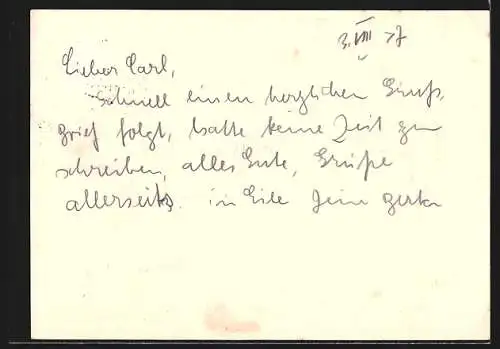 3. VIII 37
Lieber Carl,
schnell einen herzlichen Gruß,
Brief folgt, hatte keine Zeit zu
schreiben, alles Gute, Grüße
allerseits. in Eile Dein